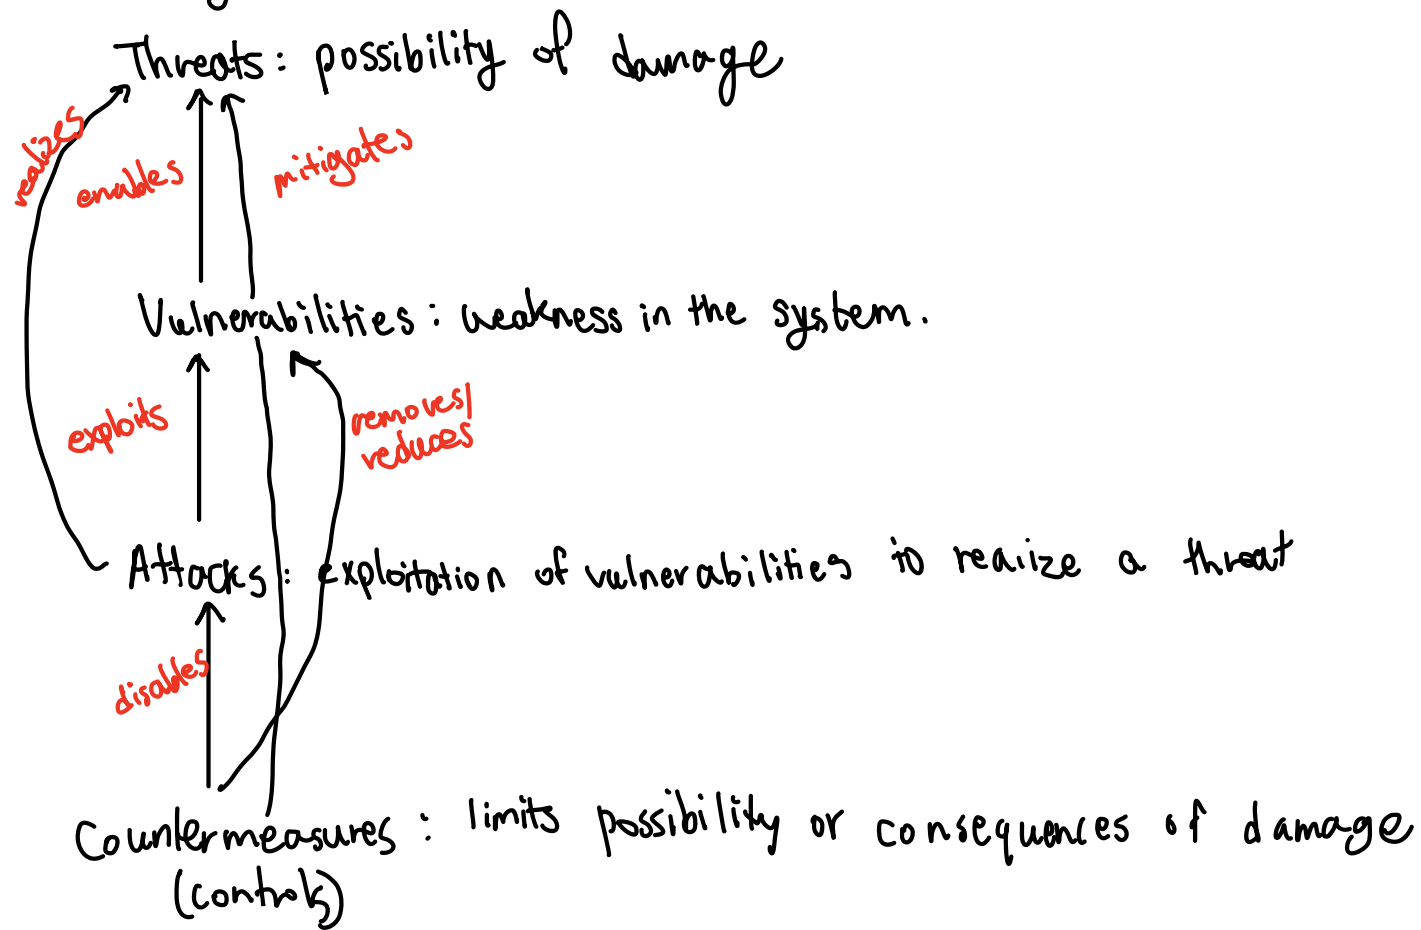 Threats: possibility of damage
realizes
enables
mitigates
Vulnerabilities: weakness in the system.
exploits
removes/
reduces
Attacks: exploitation of vulnerabilities to realize a threat
disables
Countermeasures: limits possibility or consequences of damage
(controls)